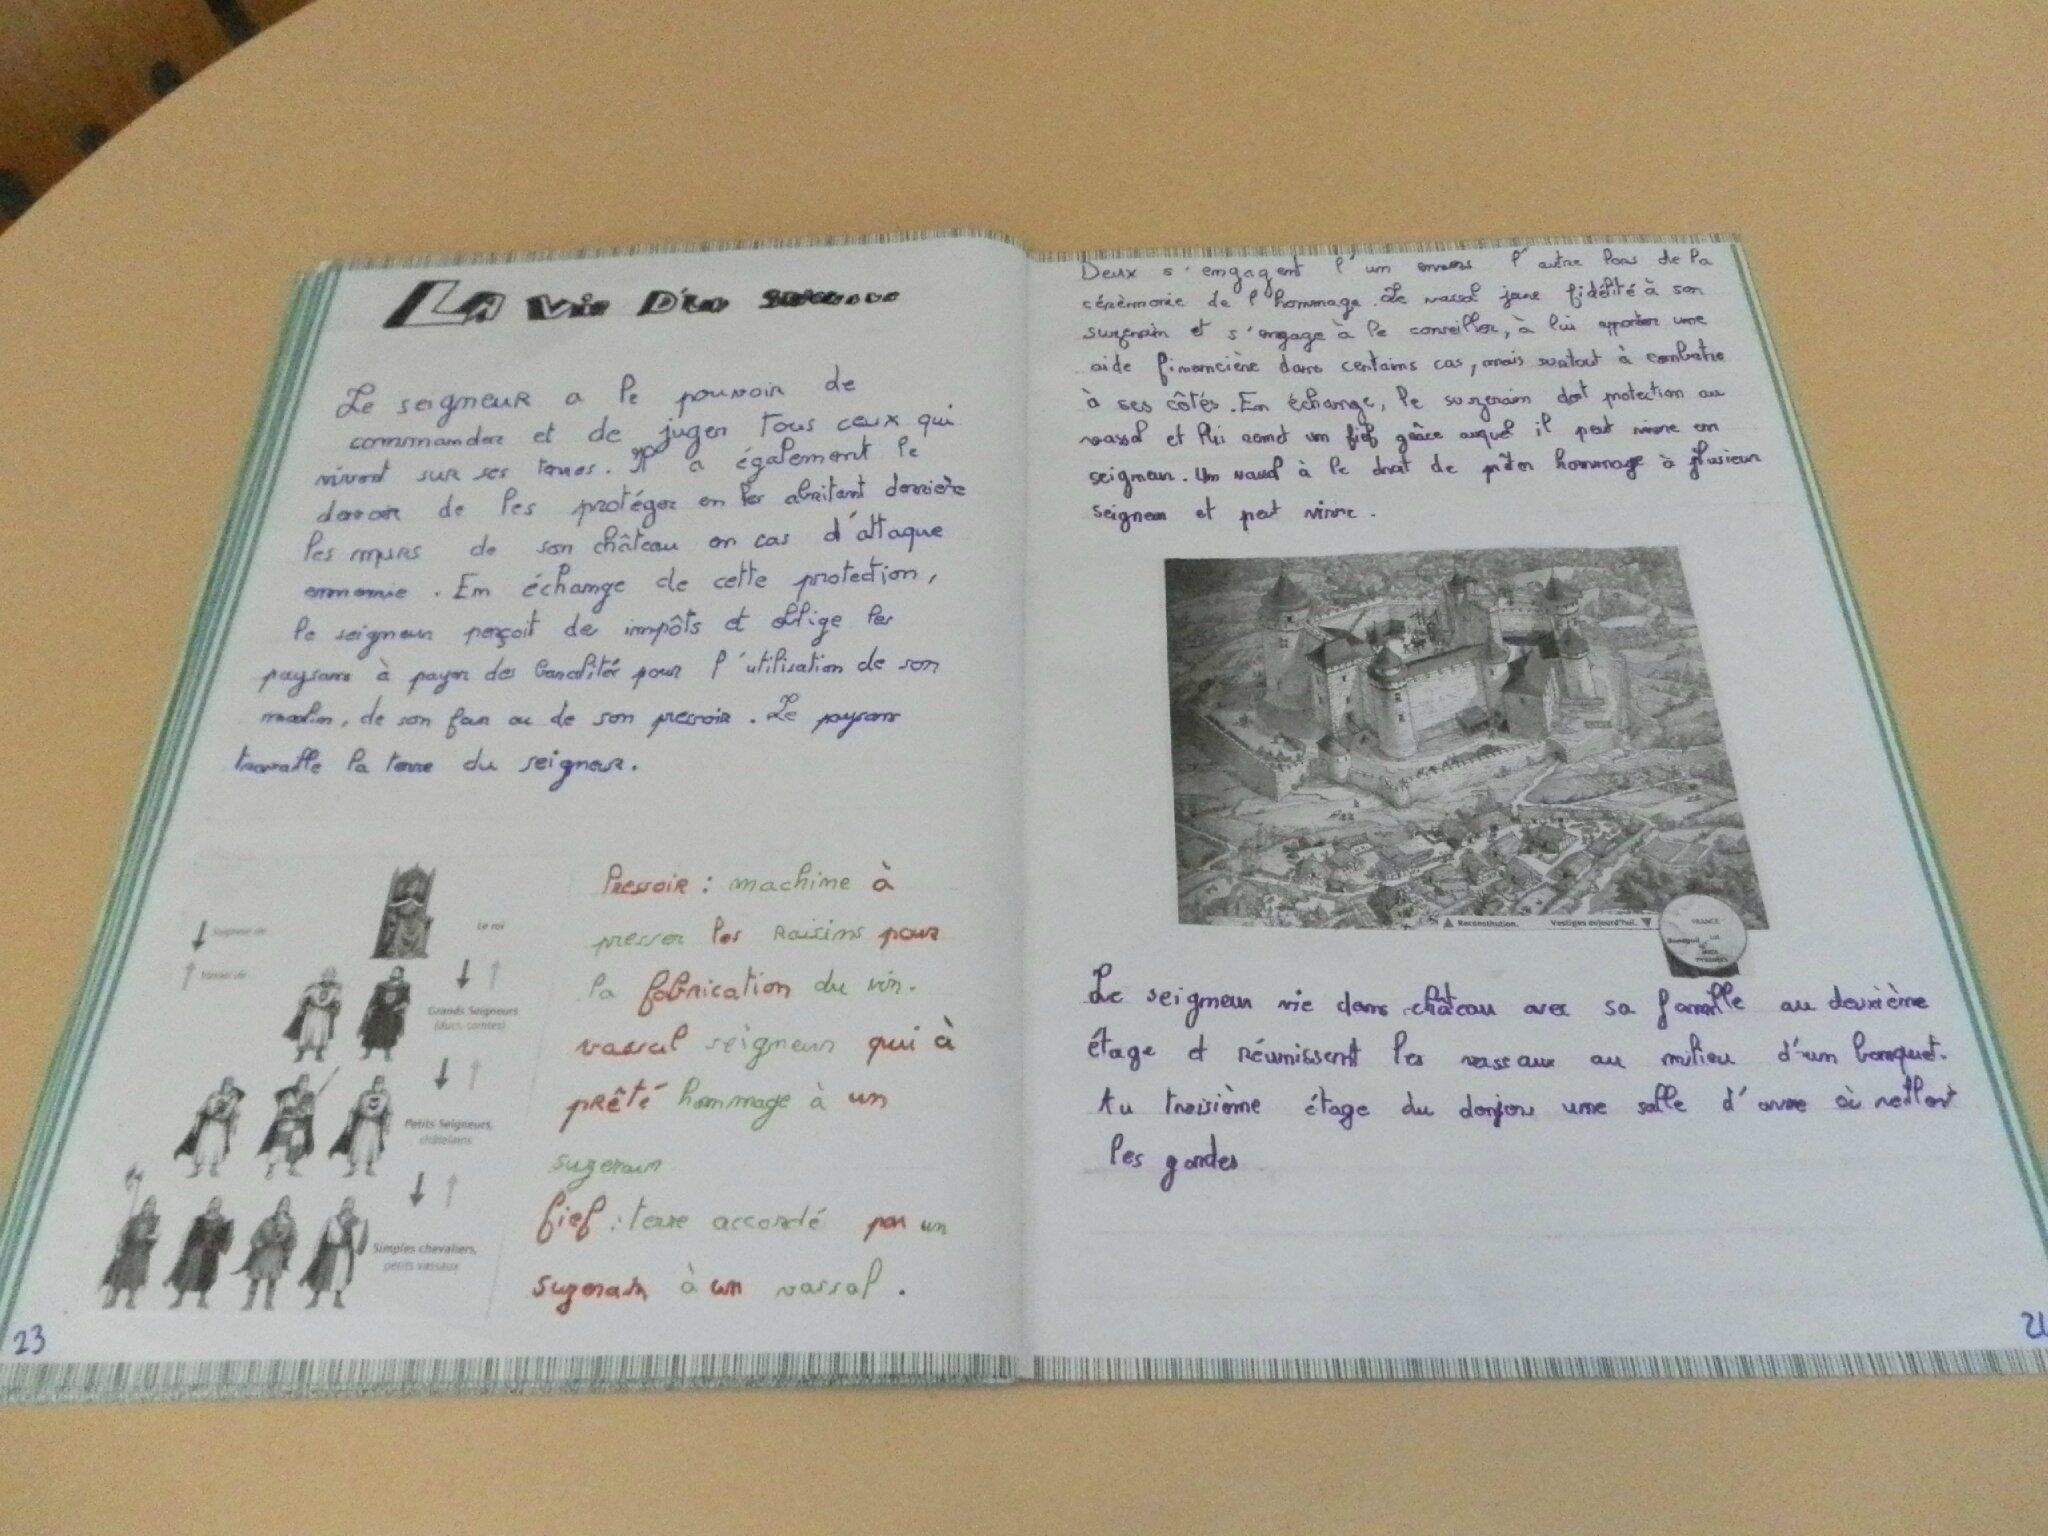 LA Vie D'un
Le seigneur a le pouvoir de
commander et de juger tous ceux qui
vivent sur ses terres. Il a également le
devoir de les protéger en les abritant derrière
les murs de son château en cas d'attaque
ennemie. En échange de cette protection,
le seigneur perçoit des impôts et oblige les
paysans à payer des banalités pour l'utilisation de son
moulin, de son four ou de son pressoir. Le paysans
travaille la terre du seigneur.
Seigneur de
Vassal de
Le roi
Grands Seigneurs
(ducs, comtes)
Petits Seigneurs,
châtelains
Simples chevaliers,
petits vassaux
Pressoir : machine à
presser les raisins pour
la fabrication du vin.
vassal seigneur qui à
prêté hommage à un
suzerain
fief : terre accordé par un
suzerain à un vassal.
23
Deux s'engagent l'un envers l'autre lors de la
cérèmonie de l'hommage. Le vassal jure fidélité à son
suzerain et s'engage à le conseiller, à lui apporter une
aide financière dans certains cas, mais surtout à combatre
à ses côtés. En échange, le suzerain doit protection au
vassal et lui remet un fief grâce auquel il peut vivre en
seigneur. Un vassal à le droit de prêter hommage à plusieur
seigneur et peut vivre.
Reconstitution. Vestiges aujourd'hui.
FRANCE
Bonaguil
Le seigneur vie dans château avec sa famille au deuxième
étage et réunissent les vassaux au milieu d'un banquet.
Au troisième étage du donjon une salle d'arme où veillent
les gardes